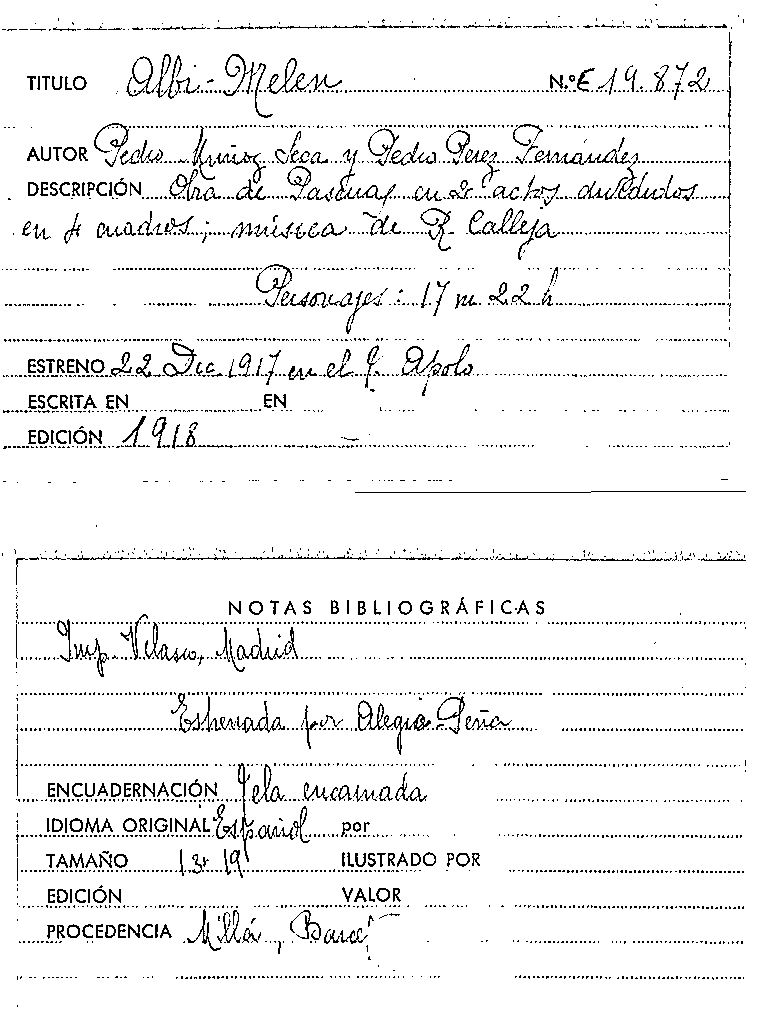 TITULO Albi-Melen N.ºE 19.872
AUTOR Pedro Muñoz Seca y Pedro Perez Fernández
DESCRIPCIÓN Obra de Pascuas en 2 actos divididos
en 4 cuadros; música de R. Calleja
Personajes: 17 m 22 h
ESTRENO 22 Dic. 1917 en el T. Apolo
ESCRITA EN EN
EDICIÓN 1918
NOTAS BIBLIOGRÁFICAS
Imp. Velasco, Madrid
Estrenada por Alegría-Peña
ENCUADERNACIÓN Tela encarnada
IDIOMA ORIGINAL Español por
TAMAÑO 13 19 ILUSTRADO POR
EDICIÓN VALOR
PROCEDENCIA Millá,